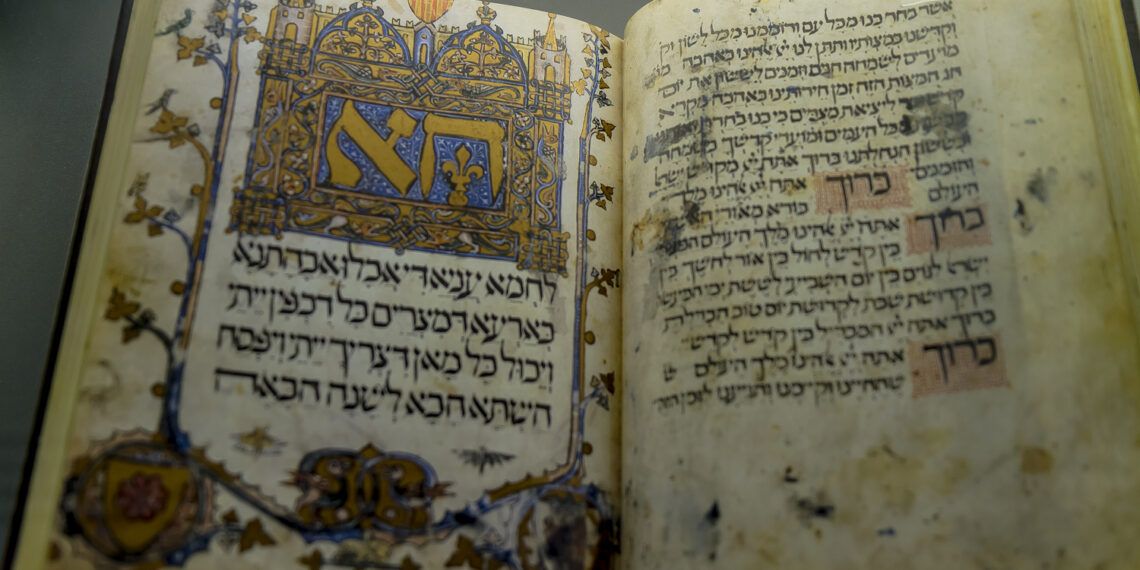 אשר בחר בנו מכל עם ורוממנו מכל לשון וק
וקדשנו במצותיו ותתן לנו ייי אלהינו באהבה מו
מועדים לשמחה חגים וזמנים לששון את יום
חג המצות הזה זמן חירותינו באהבה מקרא
קדש ליציאת מצרים כי בנו בחרת
מכל העמים ומועדי קדשיך בשמחה
ובששון הנחלתנו ברוך אתה ייי מקדש ישר
והזמנים ברוך אתה ייי אלהינו מלך
העולם בורא מאורי
ברוך אתה ייי אלהינו מלך העולם המב
בין קדש לחול בין אור לחשך בין
ישרא לגוים בין יום השביעי לששת ימי המעש
בין קדושת שבת לקדושת יום טוב הבדלת
ברוך אתה ייי המבדיל בין קדש לקדש
ברוך אתה ייי אלהינו מלך העולם ש
שהחיינו וקיימנו והגיענו לזמן הזה
הא
לחמא עניא די אכלו אבהתנא
בארעא דמצרים כל דכפין ייתי
ויכול כל מאן דצריך ייתי ויפסח
השתא הכא לשנה הבאה